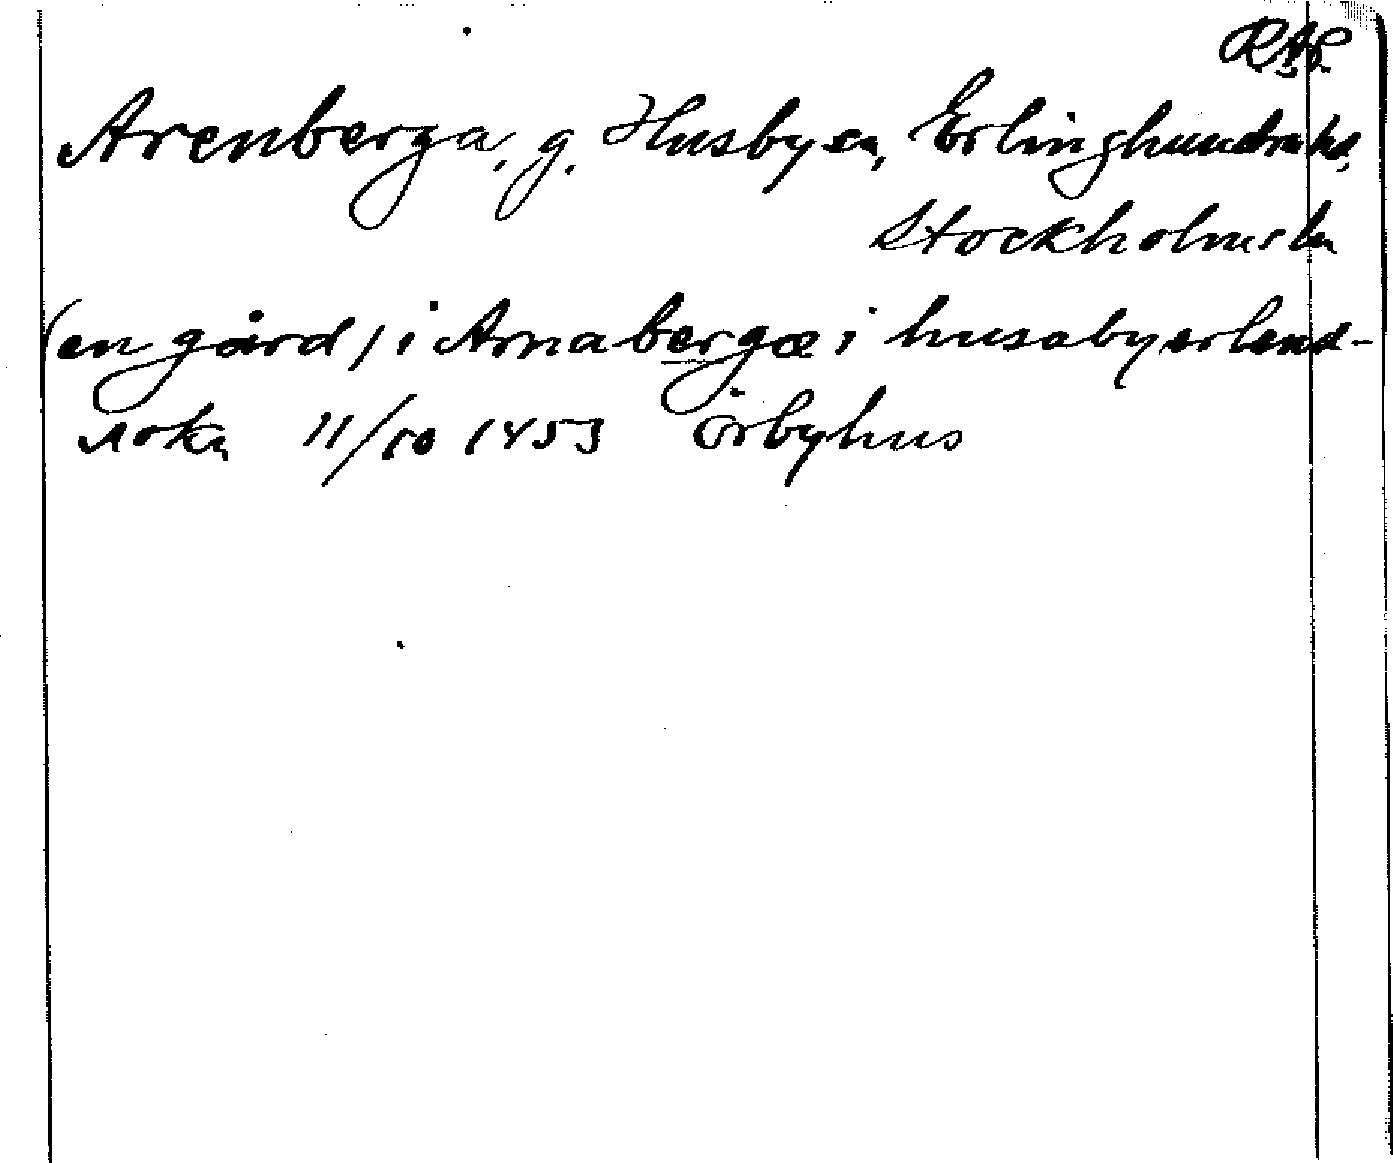 RAP.
Arenberga, g. Husby sn, Erlinghundra hd,
Stockholms län
(en gård) i Arnabergæ i husabyerlend-
sokn 11/10 1453 Örbyhus